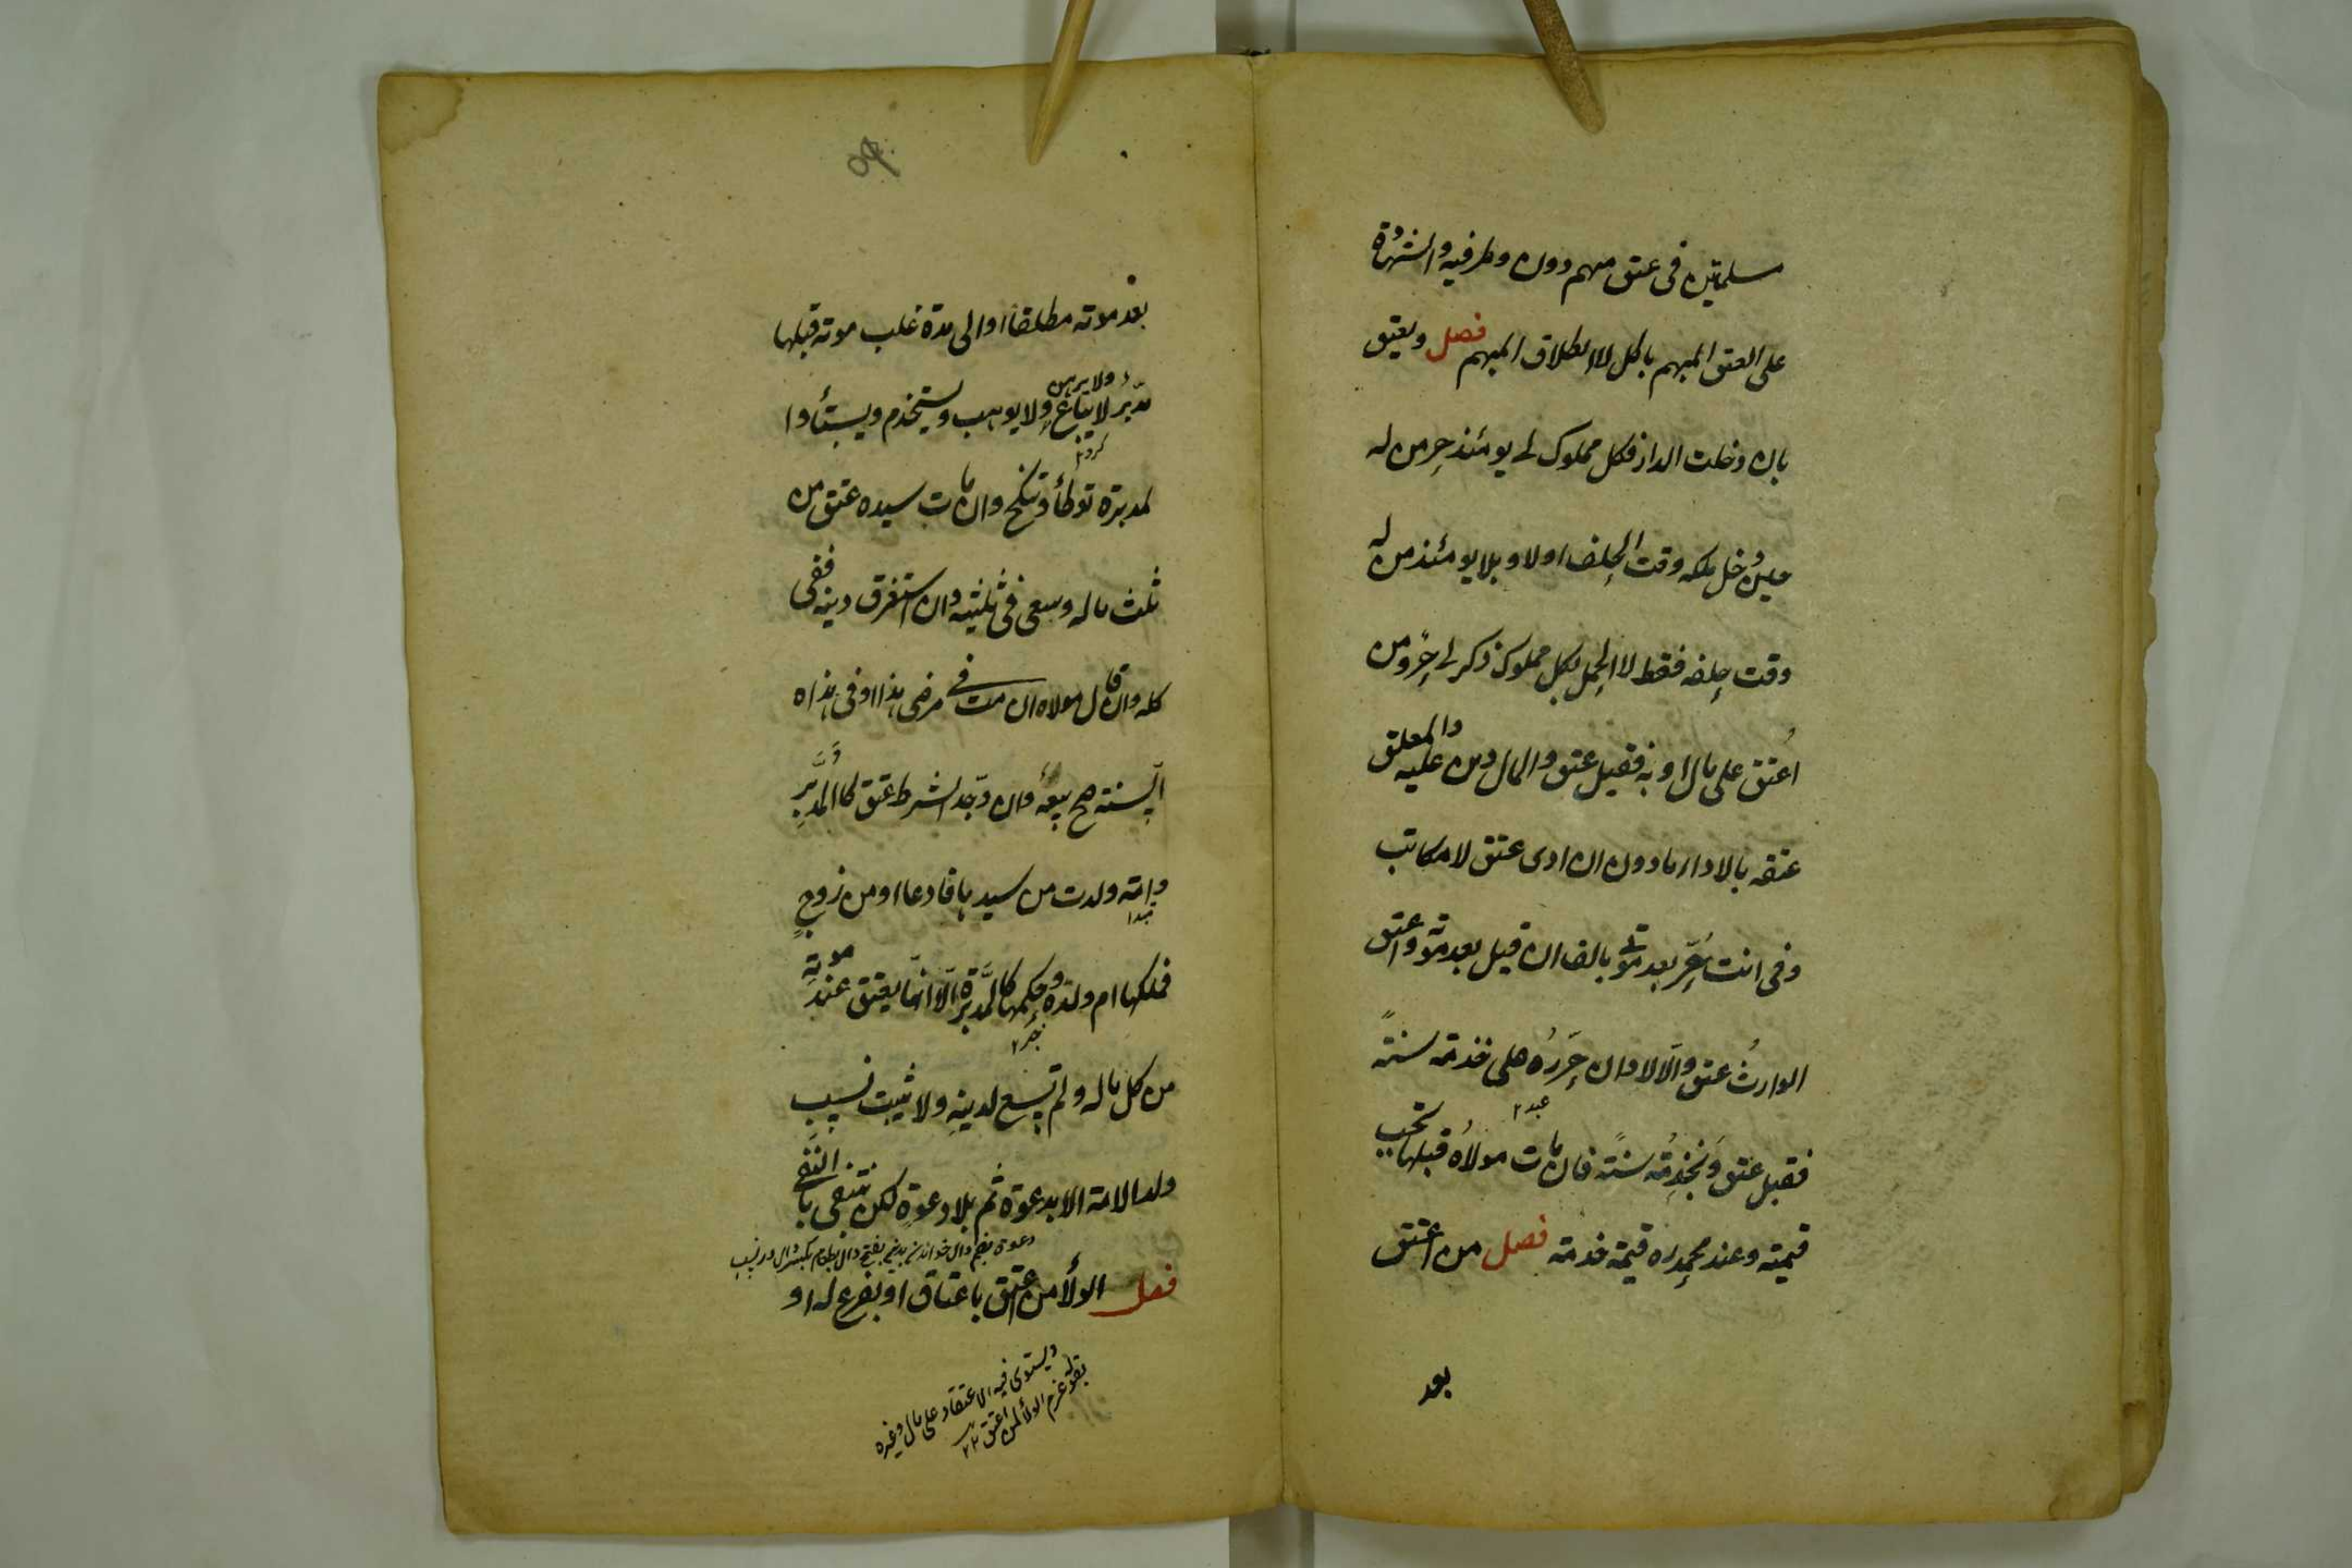 مسلمتين فى عتق مبهم دون وطى فيه والشهادة
على العتق المبهم باطل لا الطلاق المبهم فصل ويعتق
بان دخلت الدار فكل مملوك لى يومئذ حر من له
حين دخل ملكه وقت الحلف اولا وبلا يومئذ من له
وقت حلفه فقط لا الحمل بكل مملوك ذكر لى حر ومن
اعتق على مال او به فقبل عتق والمال دين عليه والمعلق
عتقه بالاداء ماذون ان ادى عتق لا مكاتب
وفى انت حر بعد موتى بالف ان قبل بعد موته واعتق
الوارث عتق والا لا وان حرره على خدمته سنة
عبد ٢
فقبل عتق ويخدمه سنة فان مات مولاه قبلها تجب
قيمته وعند محمد ره قيمة خدمته فصل من اعتق
بعد
٥٩
بعد موته مطلقا او الى مدة غلب موته قبلها
ولا يرهن
مدبر لا يباع ولا يوهب ويستخدم ويستأ وا
كرده
لمدبرة توطأ وتنكح وان مات سيده عتق من
ثلث ماله وسعى فى ثلثيه وان استغرق دينه ففى
كله وان قال مولاه ان مت فى مرضى هذا او فى هذه
السنة صح بيعه وان وجد الشرط عتق كالمدبر
وامة ولدت من سيدها فادعا او من زوج
فملكها ام ولده وحكمها كالمدبرة الا انها يعتق عند موته
من كل ماله ولم تسع لدينه ولا يثبت نسب
ولد الامة الا بدعوة ثم بلا دعوة لكن ينتفى بالنفى
دعوة بضم دال خواندن بفتح دال بطعام بكسر دال در نسب
فصل الولأ من اعتق باعتاق او بفرع له او
ويستوى فيه الاعتقاد على مال وغيره
بقوله عم الولأ لمن اعتق ٢٢